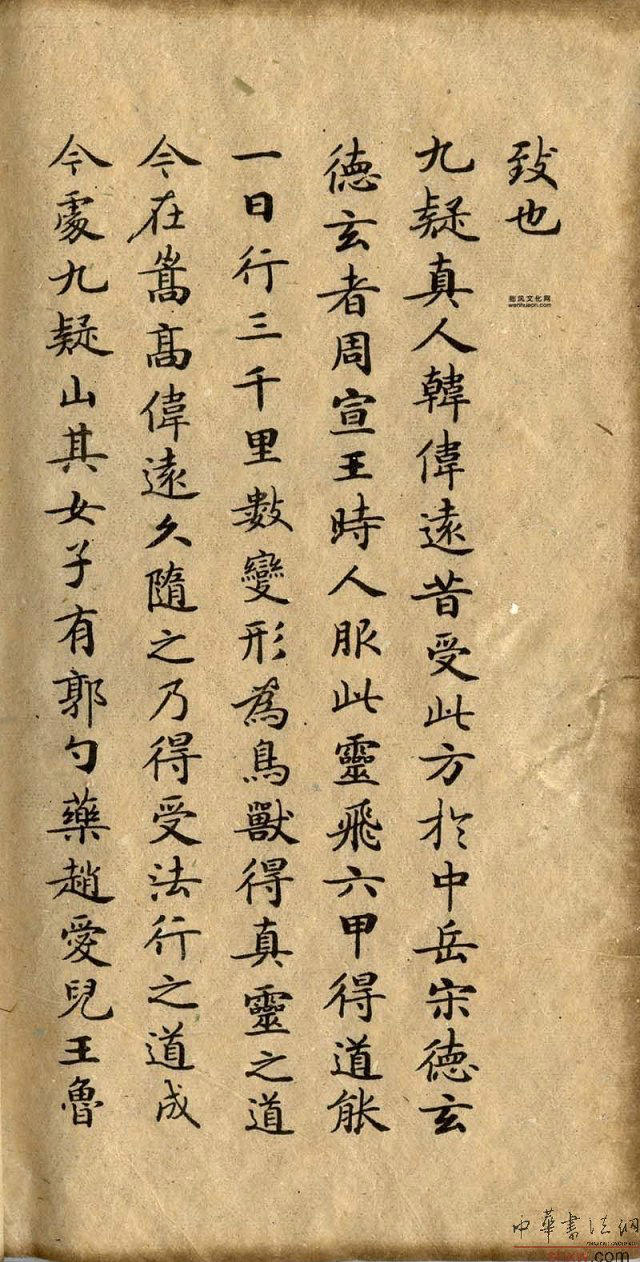 致也
九疑真人韓偉遠昔受此方於中岳宋德玄
德玄者周宣王時人服此靈飛六甲得道能
一日行三千里數變形為鳥獸得真靈之道
今在嵩高偉遠久隨之乃得受法行之道成
今處九疑山其女子有郭勺藥趙愛兒王魯
中華書法網
.com